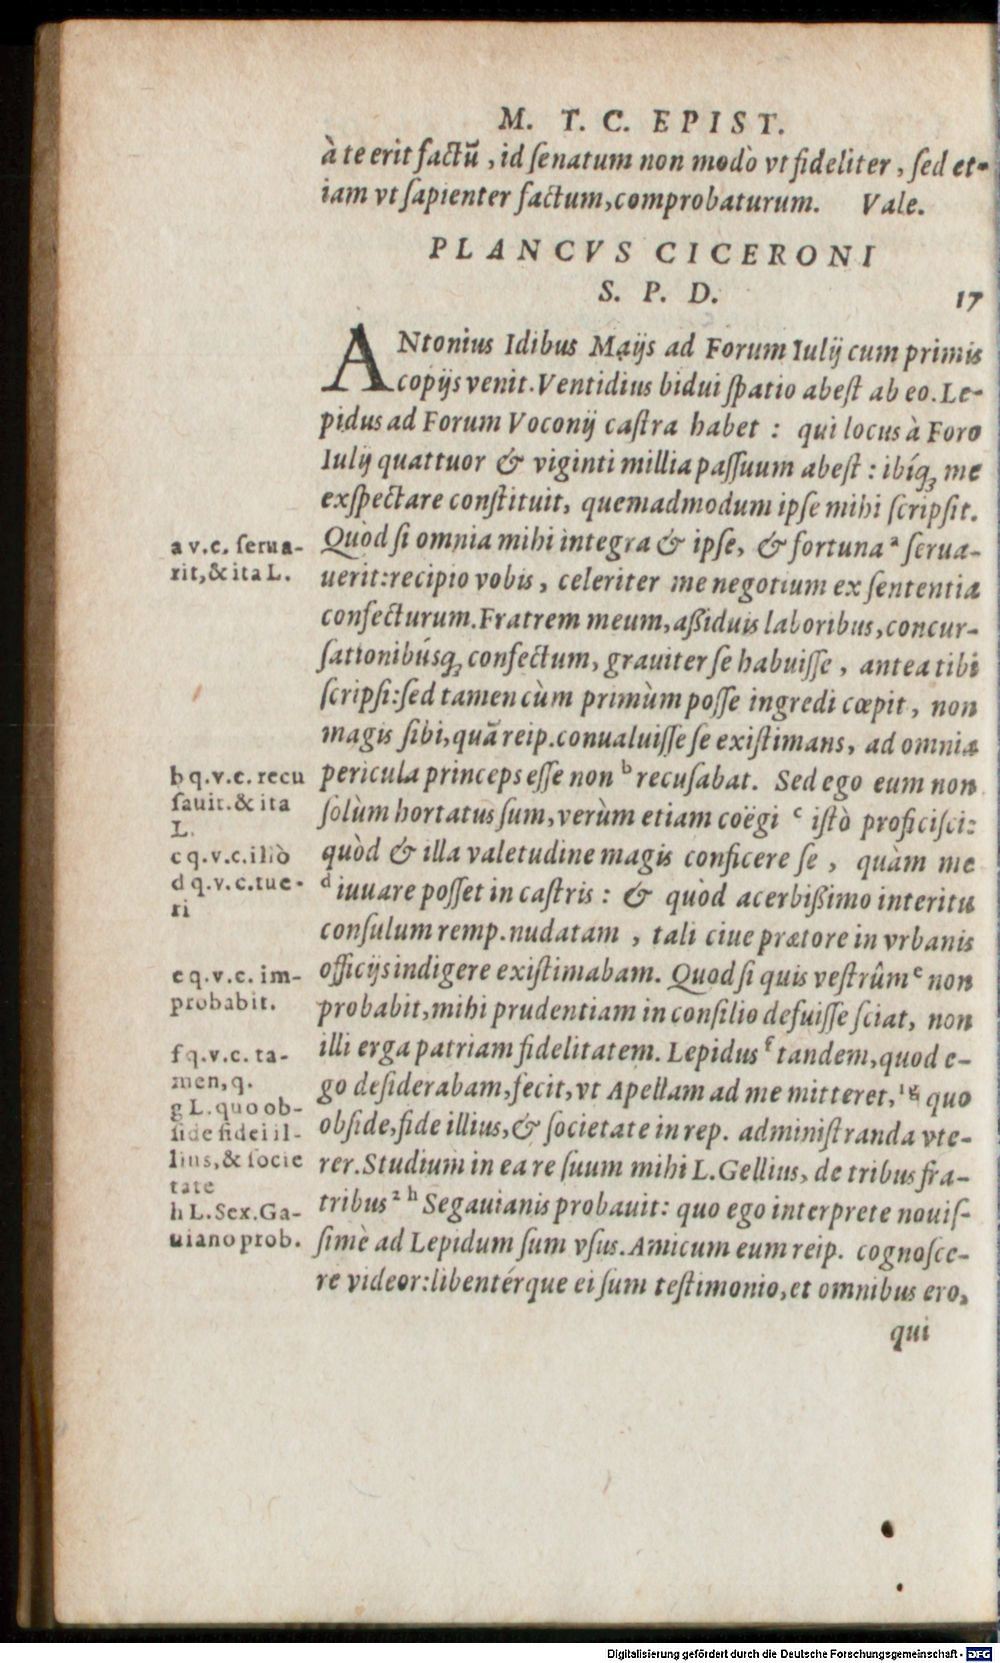 M. T. C. EPIST.
à te erit factū, id ſenatum non modò vt fideliter, ſed et-
iam vt ſapienter factum, comprobaturum. Vale.
PLANCVS CICERONI
S. P. D. 17
ANtonius Idibus Maijs ad Forum Iulij cum primis
copijs venit. Ventidius bidui ſpatio abeſt ab eo. Le-
pidus ad Forum Voconij caſtra habet : qui locus à Foro
Iulij quattuor & viginti millia paſſuum abeſt : ibíq; me
exſpectare conſtituit, quemadmodum ipſe mihi ſcripſit.
Quòd ſi omnia mihi integra & ipſe, & fortuna ᵃ ſerua-
uerit: recipio vobis, celeriter me negotium ex ſententia
confecturum. Fratrem meum, aßiduis laboribus, concur-
ſationibúsq; confectum, grauiter ſe habuiſſe, antea tibi
ſcripſi: ſed tamen cùm primùm poſſe ingredi cœpit, non
magis ſibi, quā reip. conualuiſſe ſe exiſtimans, ad omnia
pericula princeps eſſe non ᵇ recuſabat. Sed ego eum non
ſolùm hortatus ſum, verùm etiam coëgi ᶜ iſtò proficiſci:
quòd & illa valetudine magis conficere ſe, quàm me
ᵈ iuuare poſſet in caſtris : & quòd acerbißimo interitu
conſulum remp. nudatam, tali ciue prætore in vrbanis
officijs indigere exiſtimabam. Quod ſi quis veſtrûm ᵉ non
probabit, mihi prudentiam in conſilio defuiſſe ſciat, non
illi erga patriam fidelitatem. Lepidus ᶠ tandem, quod e-
go deſiderabam, fecit, vt Apellam ad me mitteret, ¹ ᵍ quo
obſide, fide illius, & ſocietate in rep. adminiſtranda vte-
rer. Studium in ea re ſuum mihi L. Gellius, de tribus fra-
tribus ² ʰ Segauianis probauit: quo ego interprete nouiſ-
ſimè ad Lepidum ſum vſus. Amicum eum reip. cognoſce-
re videor: libentérque ei ſum teſtimonio, et omnibus ero,
qui
a v.c. ſerua-
rit, & ita L.
b q.v.c. recu
ſauit. & ita
L.
c q.v.c. illò
d q.v.c. tue-
ri
e q.v.c. im-
probabit.
f q.v.c. ta-
men, q.
g L. quo ob-
ſide fidei il-
lius, & ſocie
tate
h L. Sex. Ga-
uiano prob.
Digitalisierung gefördert durch die Deutsche Forschungsgemeinschaft - DFG